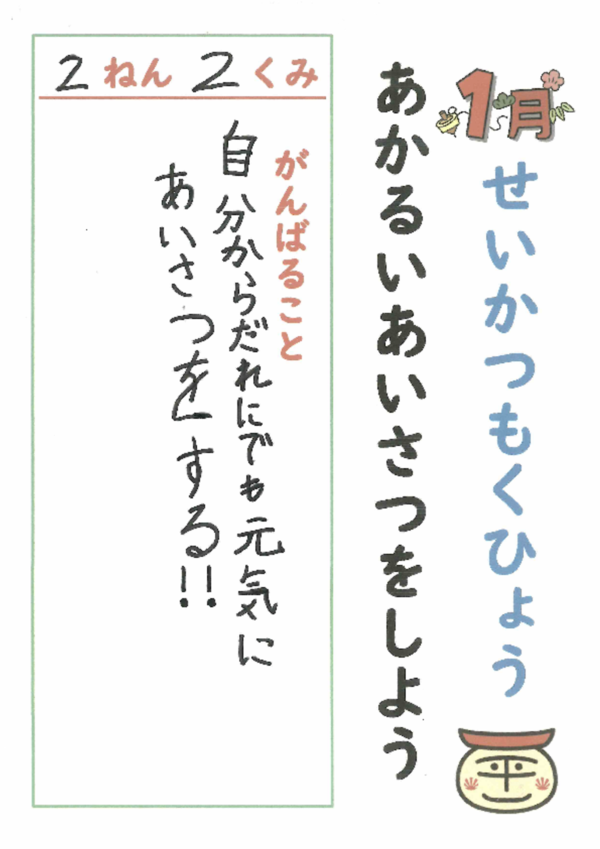 1月
せいかつもくひょう
あかるいあいさつをしよう
2ねん2くみ
がんばること
自分からだれにでも元気に
あいさつをする!!